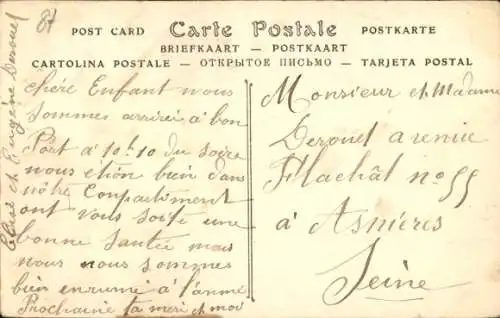 81
POST CARD
Carte Postale
POSTKARTE
BRIEFKAART — POSTKAART
CARTOLINA POSTALE — ОТКРЫТОЕ ПИСЬМО — TARJETA POSTAL
chére Enfant nous
sommes arrivei á bon
Port a 10h10 du soire
nous etion bien dans
nôtre Compartiment
ont vous soite une
bonne santée mais
nous nous sommes
bien enrumé a l'anné
Prochaine ta meri et moi
et Eugène Derouet
Monsieur et Madame
Derouet avenue
Flachât no 55
á Asnières
Seine